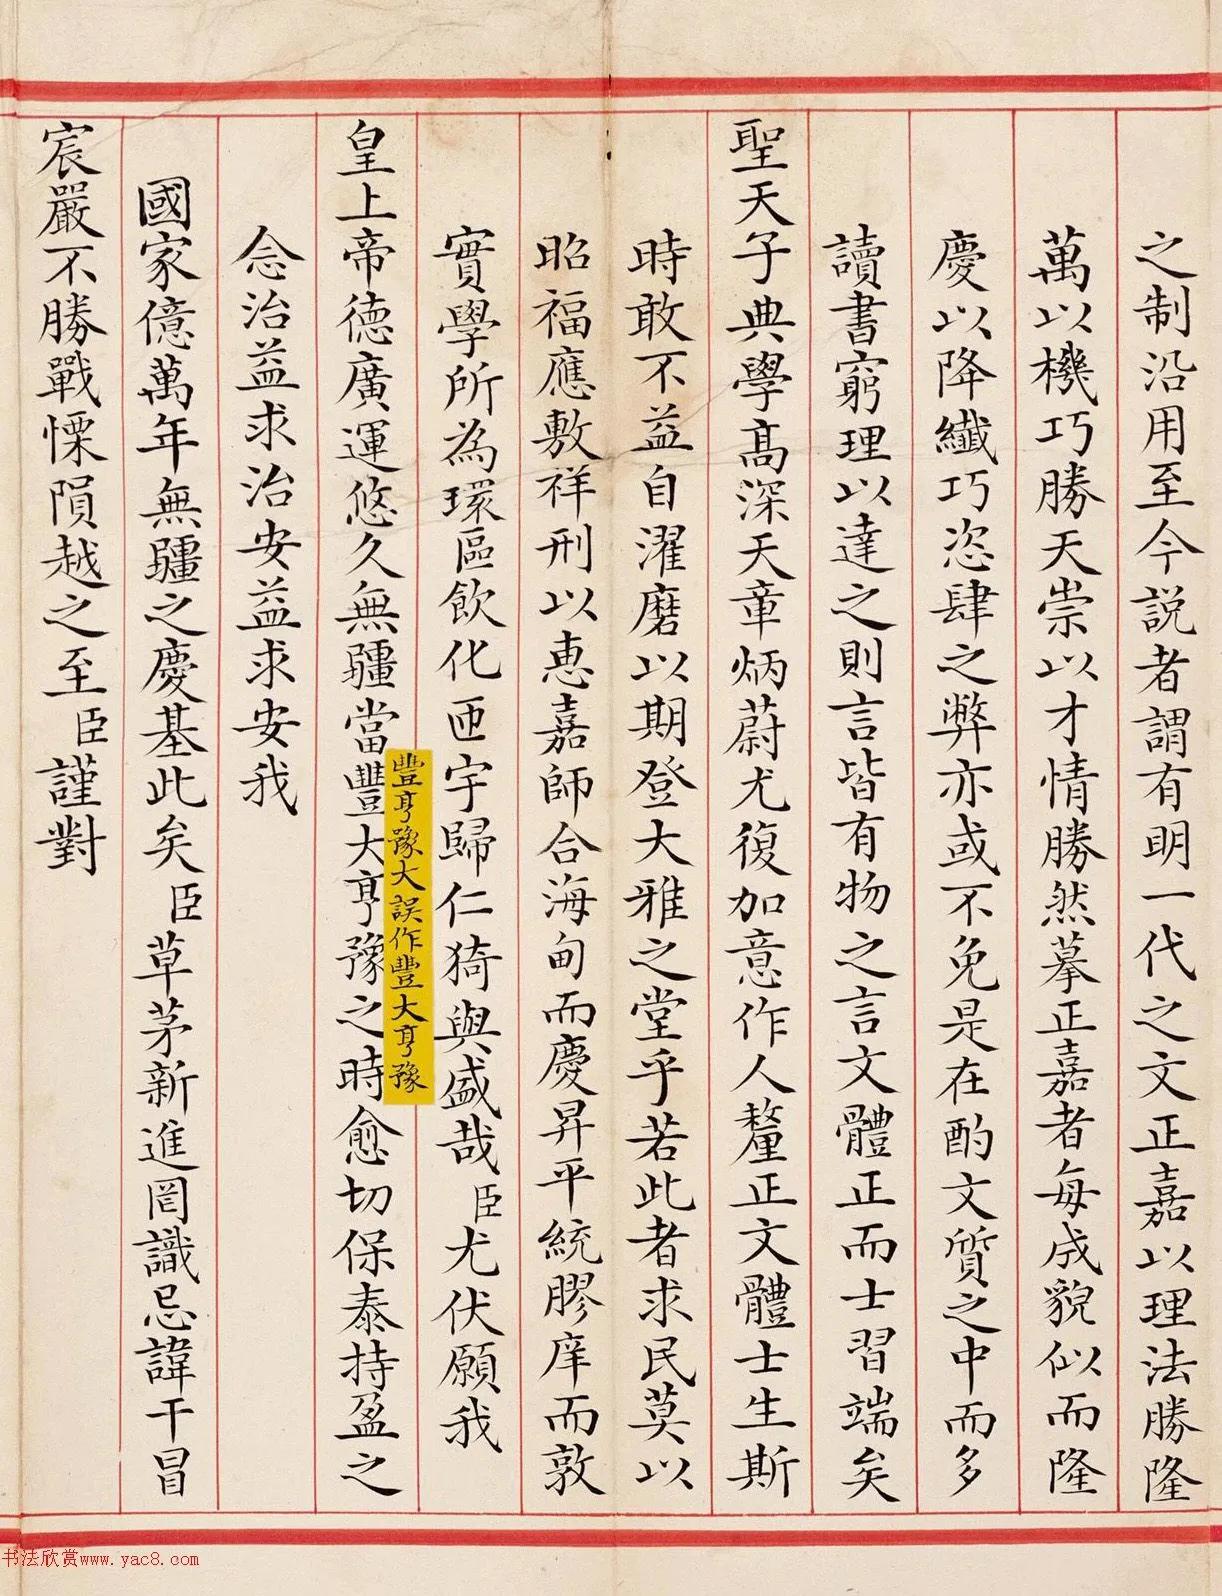 之制沿用至今説者謂有明一代之文正嘉以理法勝隆
萬以機巧勝天崇以才情勝然摹正嘉者每成貌似而隆
慶以降纖巧恣肆之弊亦或不免是在酌文質之中而多
讀書窮理以達之則言皆有物之言文體正而士習端矣
聖天子典學高深天章炳蔚尤復加意作人釐正文體士生斯
時敢不益自濯磨以期登大雅之堂乎若此者求民莫以
昭福應敷祥刑以惠嘉師合海甸而慶昇平統膠庠而敦
實學所為環區飲化匝宇歸仁猗與盛哉臣尤伏願我
豐亨豫大誤作豐大亨豫
皇上帝德廣運悠久無疆當豐大亨豫之時愈切保泰持盈之
念治益求治安益求安我
國家億萬年無疆之慶基此矣臣草茅新進罔識忌諱干冒
宸嚴不勝戰慄隕越之至臣謹對
书法欣赏www.yac8.com